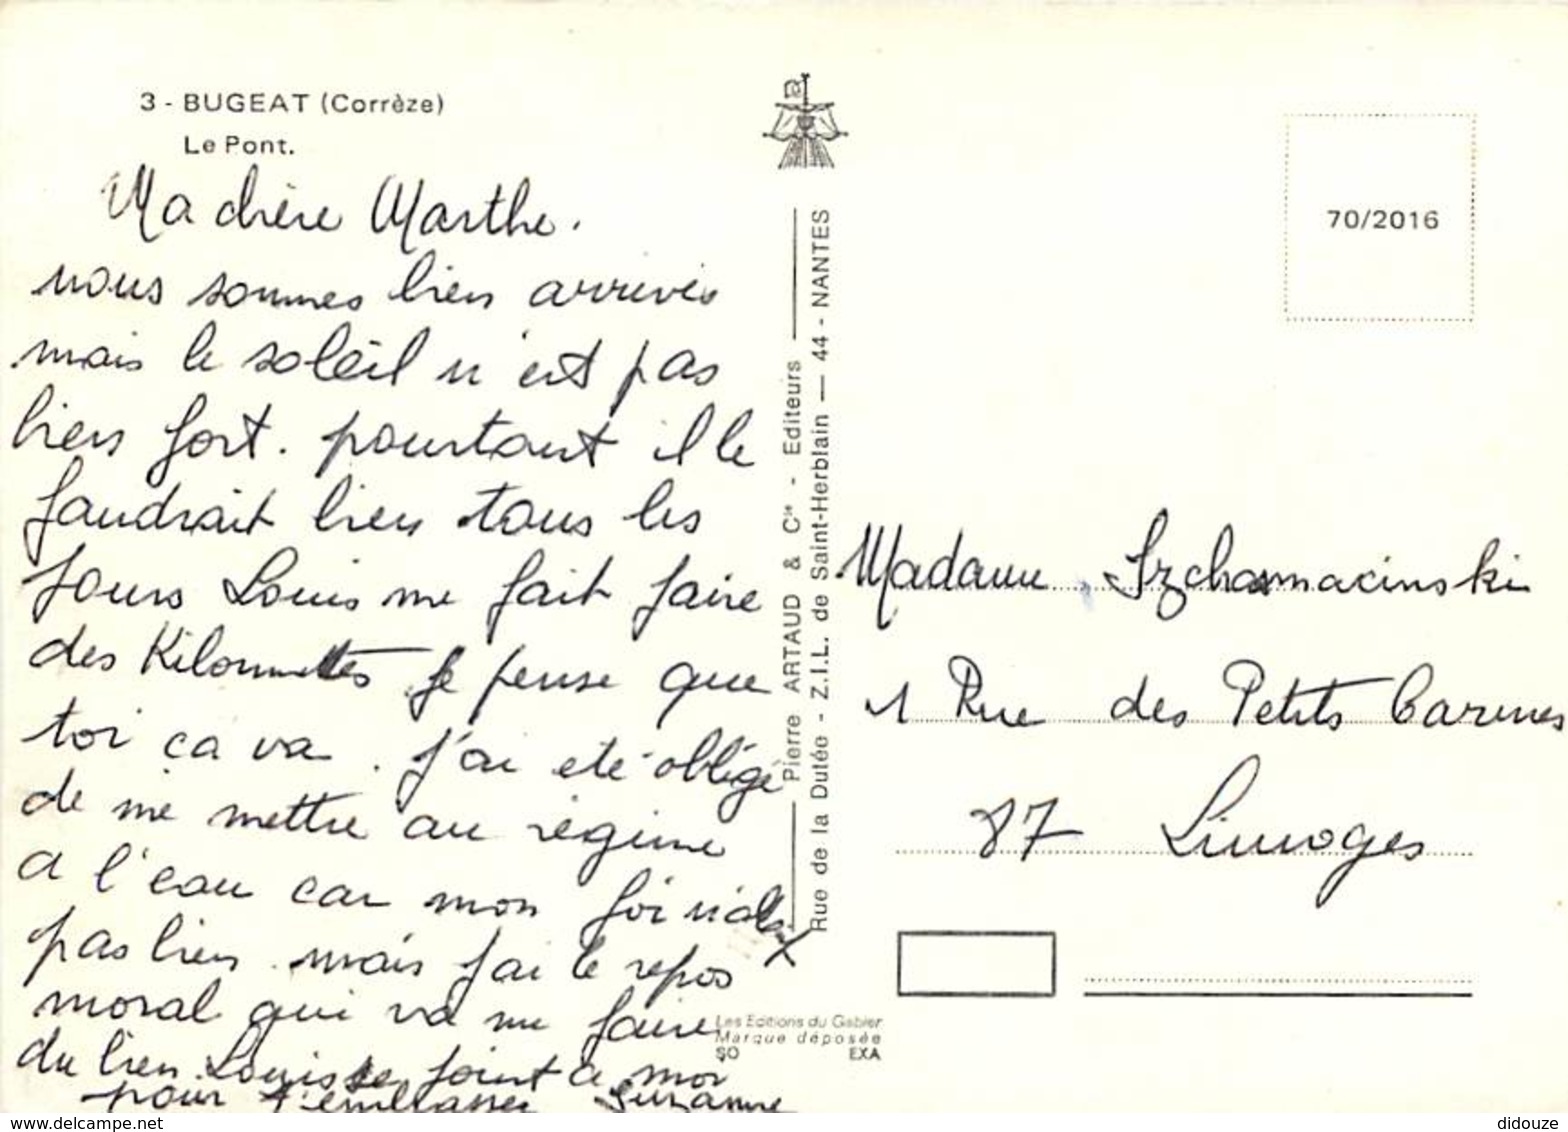 3 - BUGEAT (Corrèze)
Le Pont.
Ma chère Marthe.
nous sommes bien arrivés
mais le soleil n'est pas
bien fort. pourtant il le
faudrait bien tous les
jours Louis me fait faire
des Kilomettes je pense que
toi ca va. j'ai eté obligé
de me mettre au régime
a l'eau car mon foi n'alla
pas bien. mais j'ai le repos
moral qui va me faire
du bien. Louis se joint a moi
pour t'embrasser Suzanne
Pierre ARTAUD & Cie - Editeurs
Rue de la Dutée - Z.I.L. de Saint-Herblain — 44 - NANTES
Les Editions du Gabier
Marque déposée
SO EXA
70/2016
Madame Szchamacinski
1 Rue des Petits Carmes
87 Limoges
www.delcampe.net
didouze